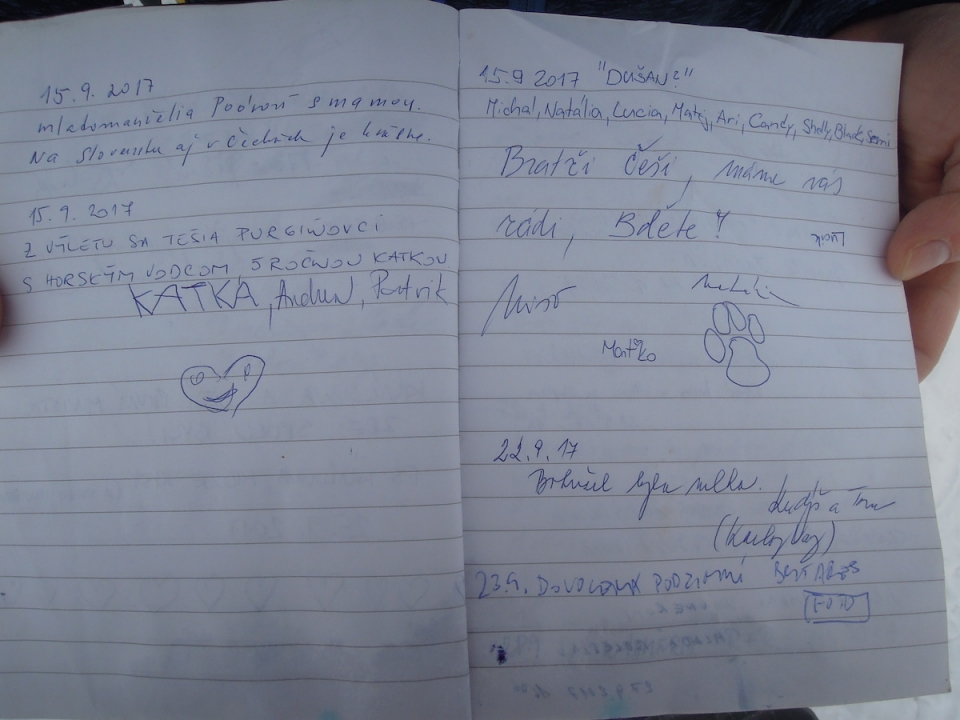 15.9.2017
mladomanželia s mamou.
Na Slovensku aj v Čechách je krásne.
15.9.2017
Z VÝLETU SA TEŠIA PURGIŇOVCI
S HORSKÝM VODCOM, 5 ROČNOU KATKOU
KATKA, Patrik
15.9 2017 "DUŠAN?"
Michal, Natália, Lucia, Matej, Ari, Candy, Shelly, Black,
Bratři Češi, máme vás
rádi, Bděte!
Lucia
Natália
Mišo
Maťko
22.9.17
Bohužel byla mlha.
a Tom
(Karlovy Vary)
23.9. DOVOLENÁ PODZIMNÍ